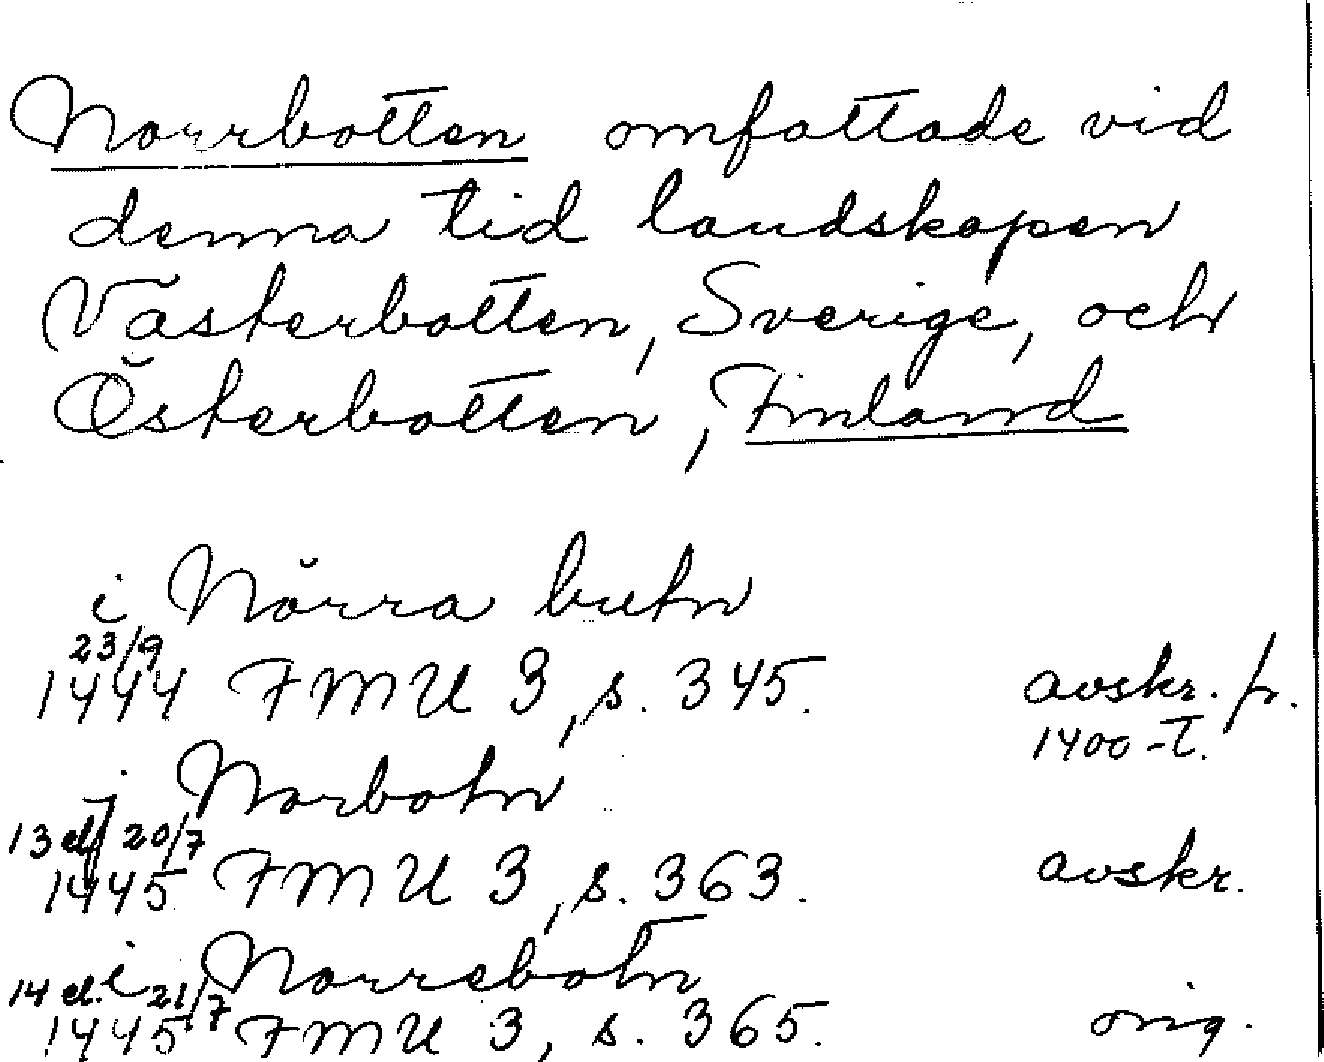 Norrbotten omfattade vid
denna tid landskapen
Västerbotten, Sverige, och
Österbotten, Finland
i Nörra butn
23/9
1444 FMU 3, s. 345. avskr. fr.
1400-t.
j Norbotn
13 el. 20/7
1445 FMU 3, s. 363. avskr.
i Norrebotn
14 el. 21/7
1445 FMU 3, s. 365. orig.